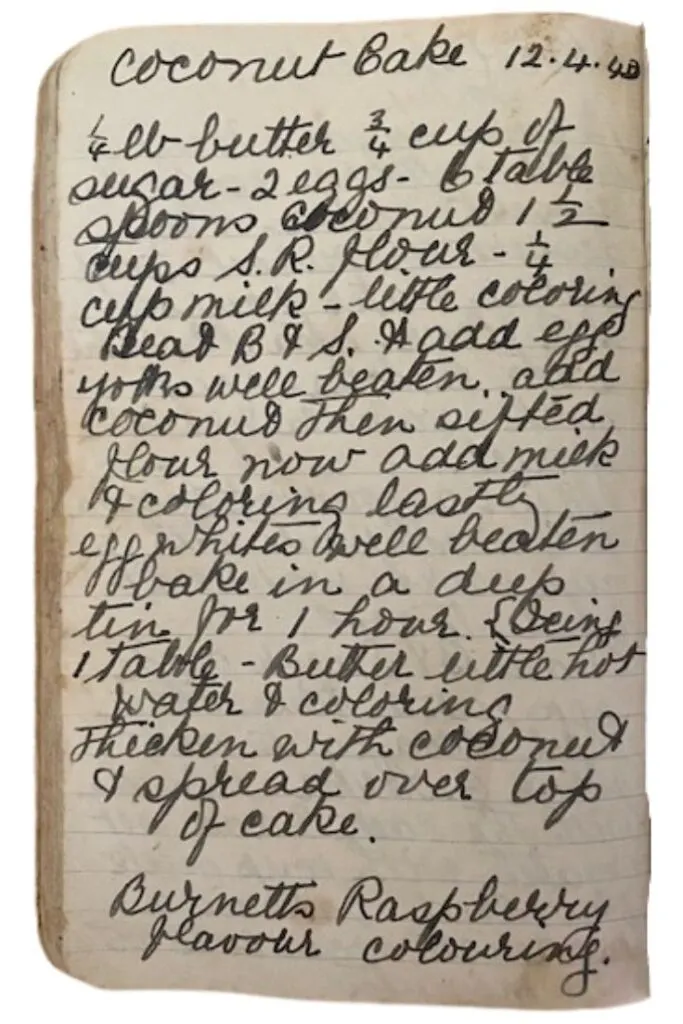 Coconut Cake 12.4.40
1/4 lb butter 3/4 cup of
sugar - 2 eggs - 6 table
spoons coconut 1 1/2
cups S.R. flour - 1/4
cup milk - little coloring
Beat B & S. & add egg
yolks well beaten. add
coconut then sifted
flour now add milk
& coloring lastly
egg whites well beaten
bake in a deep
tin for 1 hour. {Icing
1 table - Butter little hot
water & coloring
thicken with coconut
& spread over top
of cake.
Burnetts Raspberry
flavour colouring.